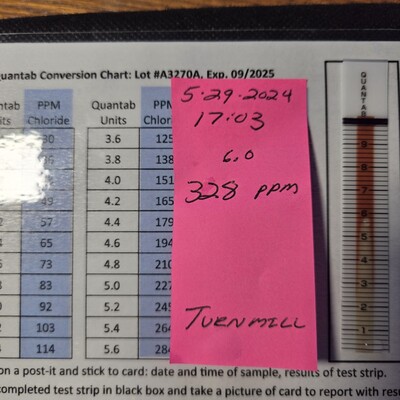 Quantab Conversion Chart: Lot #A3270A, Exp. 09/2025
PPM
Chloride
30
49
57
65
73
83
92
103
114
Quantab Units
PPM
3.6 125
3.8 138
4.0 151
4.2 165
4.4 179
4.6 194
4.8 210
5.0 227
5.2 245
5.4 264
5.6 284
5·29·2024
17:03
6.0
328 PPM
TURNMILL
QUANTAB
9
8
7
6
5
4
3
2
1
on a post-it and stick to card: date and time of sample, results of test strip.
completed test strip in black box and take a picture of card to report with